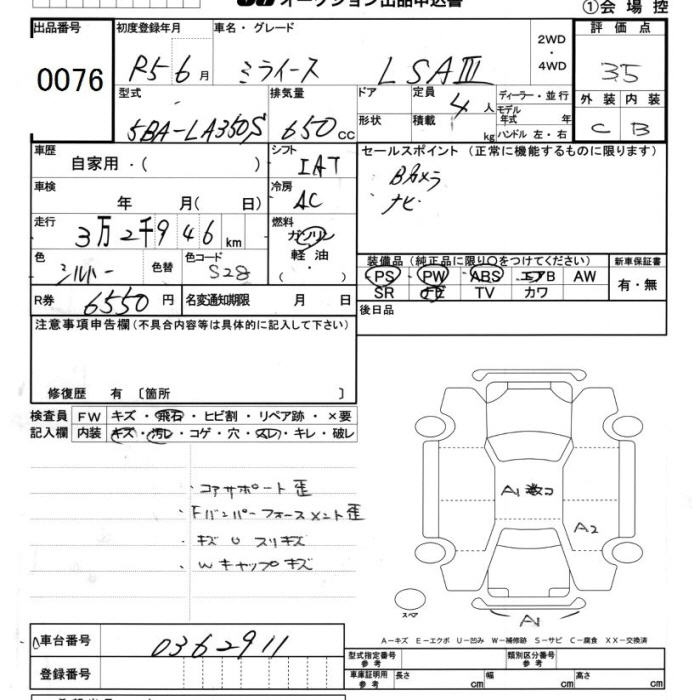 オークション出品申込書
①会場控
出品番号 0076
初度登録年月 R5 6月
車名・グレード ミライース L SAⅢ
2WD・4WD
評価点 3.5
型式 5BA-LA350S
排気量 650cc
ドア 形状
定員 4人
積載 kg
ディーラー・並行
モデル年式 年
ハンドル 左・右
外装 内装
C B
車歴 自家用・( )
シフト IAT
セールスポイント (正常に機能するものに限ります)
Bカメラ
ナビ
車検 年 月( 日)
冷房 AC
走行 3万2千946km
燃料 ガソリン 軽油・( )
色 シルバー 色替
色コード S28
装備品 (純正品に限り○をつけてください)
PS PW ABS エアB AW
SR TV カワ
新車保証書 有・無
R券 6550円
名変通知期限 月 日
後日品
注意事項申告欄(不具合内容等は具体的に記入して下さい)
修復歴 有 〔箇所 〕
検査員記入欄
FW キズ・飛石・ヒビ割・リペア跡・×要
内装 キズ・汚レ・コゲ・穴・スレ・キレ・破レ
・コアサポート歪
・Fバンパーフォースメント歪
・キズUスリキズ
・Wキャップキズ
A1数コ
A2
スペア
A1
A-キズ E-エクボ U-凹み W-補修跡 S-サビ C-腐食 XX-交換済
車台番号 0362911
登録番号
型式指定番号 参考
類別区分番号 参考
車庫証明用 参考 長さ cm 幅 cm 高さ cm